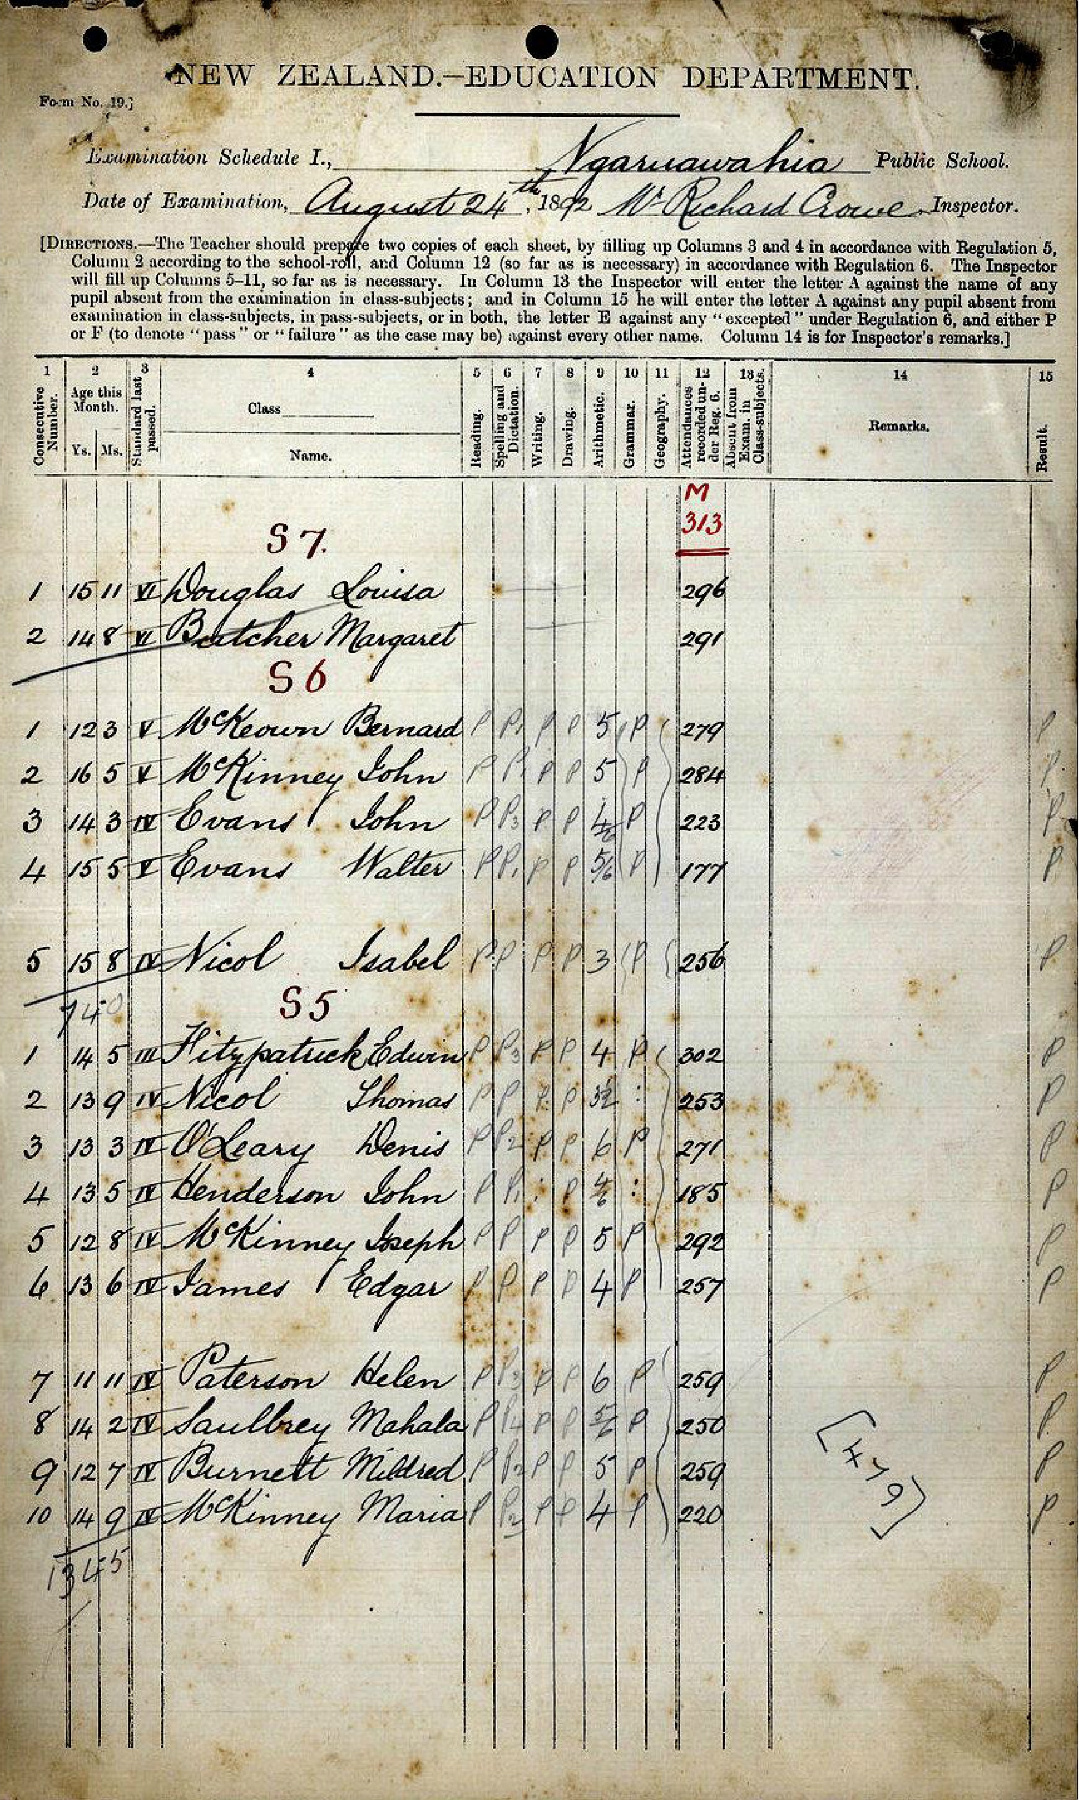 NEW ZEALAND.—EDUCATION DEPARTMENT.
Form No. 19.]
Examination Schedule I., Ngaruawahia Public School.
Date of Examination, August 24th, 1892 Mr Richard Crowe, Inspector.
[DIRECTIONS.—The Teacher should prepare two copies of each sheet, by filling up Columns 3 and 4 in accordance with Regulation 5,
Column 2 according to the school-roll, and Column 12 (so far as is necessary) in accordance with Regulation 6. The Inspector
will fill up Columns 5–11, so far as is necessary. In Column 13 the Inspector will enter the letter A against the name of any
pupil absent from the examination in class-subjects; and in Column 15 he will enter the letter A against any pupil absent from
examination in class-subjects, in pass-subjects, or in both, the letter E against any "excepted" under Regulation 6, and either P
or F (to denote "pass" or "failure" as the case may be) against every other name. Column 14 is for Inspector's remarks.]
1 2 3 4 5 6 7 8 9 10 11 12 13 14 15
Consecutive Number. Age this Month. Ys. Ms. Standard last passed. Class Name. Reading. Spelling and Dictation. Writing. Drawing. Arithmetic. Grammar. Geography. Attendances recorded under Reg. 6. Absent from Exam. in Class-subjects. Remarks. Result.
M
313
S 7.
1 15 11 VI Douglas Louisa 296
2 14 8 VI Butcher Margaret 291
S 6
1 12 3 V McKeown Bernard P P1 P P 5 P 279 P
2 16 5 V McKinney John P P1 P P 5 P 284 P
3 14 3 IV Evans John P P3 P P P 223 P
4 15 5 V Evans Walter P P1 P P 5/6 P 177 P
5 15 8 IV Nicol Isabel P P P P 3 P 256 P
74 0
S 5
1 14 5 III Fitzpatrick Edwin P P3 P P 4 P 302 P
2 13 9 IV Nicol Thomas P P P P 3½ : 253 P
3 13 3 IV O'Leary Denis P P2 P P 6 P 271 P
4 13 5 IV Henderson John P P1 : P : 185 P
5 12 8 IV McKinney Joseph P P P P 5 P 292 P
6 13 6 IV James Edgar P P P P 4 P 257 P
7 11 11 IV Paterson Helen P P3 P P 6 P 259 P
8 14 2 IV Saulbrey Mahala P P4 P P 5/6 P 250 P
9 12 7 IV Burnett Mildred P P2 P P 5 P 259 P
10 14 9 IV McKinney Maria P P2 P P 4 P 220 P
134 5
[479]